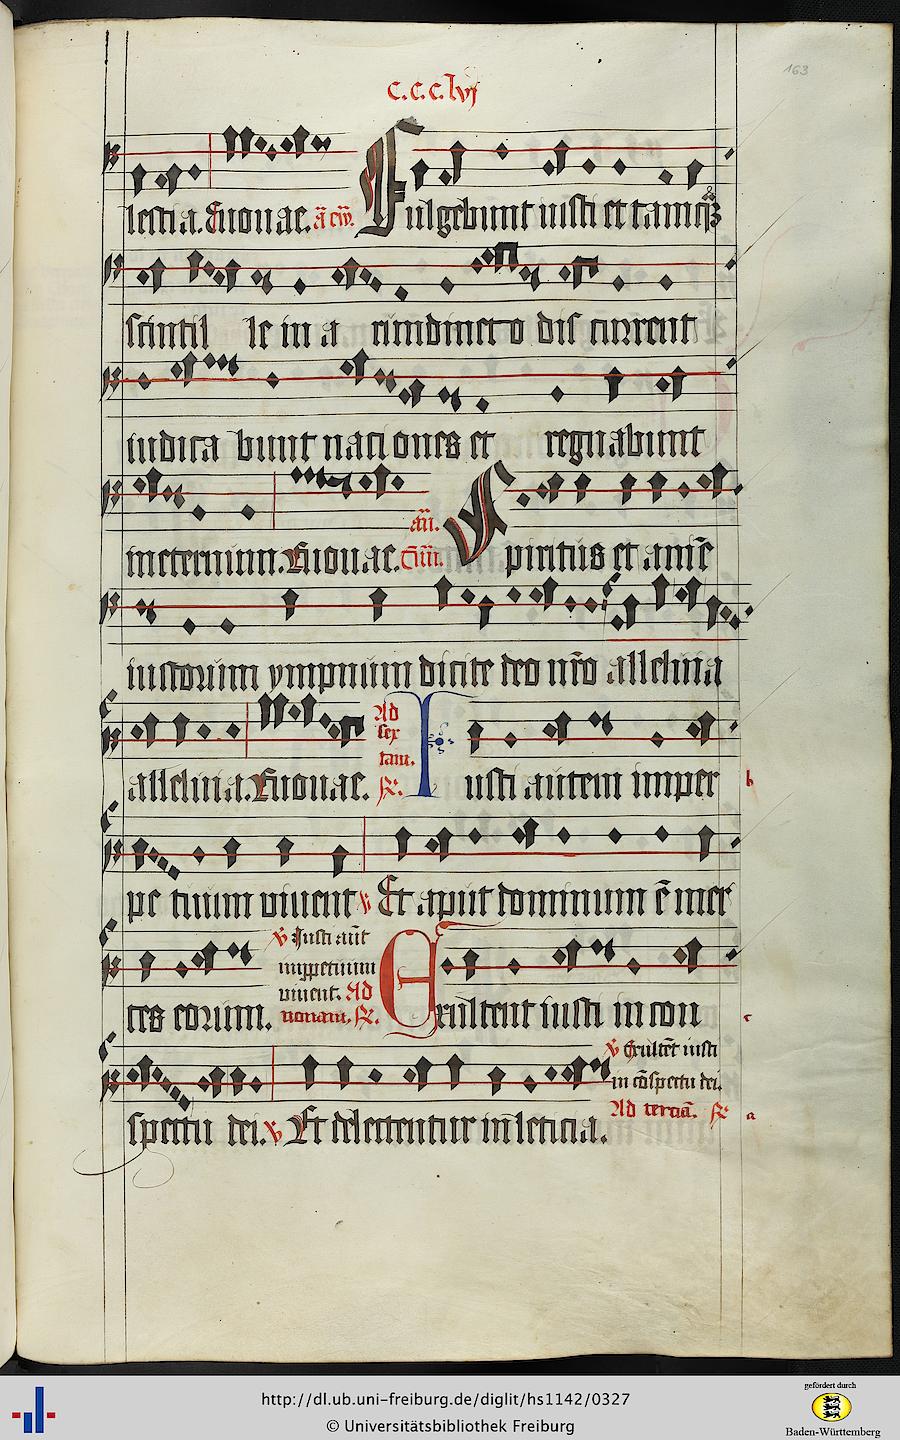 c.c.c.lvj
163
lestia. Euouae. a͞ ew͞. Fulgebunt iusti et tamqȝ
scintil le in a rundineto dis current
iudica bunt nationes et regnabunt
ineternum. Euouae. an͞. Spiritus et anime͞
iustorum ympnum dicite deo nr͞o alleluia
alleluia. Euouae. Ad sex tam. R. Iusti autem imper
b
pe tuum viuent v Et aput dominum e͞ mer
ces eorum. v Iusti aut͞
imppetuum
viuent. Ad
nonam. R. Exultent iusti in con
c
v Exulte͞t iusti
in co͞spectu dei.
Ad tercia͞. R
a
spectu dei. v Et delectentur in leticia.
http://dl.ub.uni-freiburg.de/diglit/hs1142/0327
© Universitätsbibliothek Freiburg
gefördert durch
Baden-Württemberg